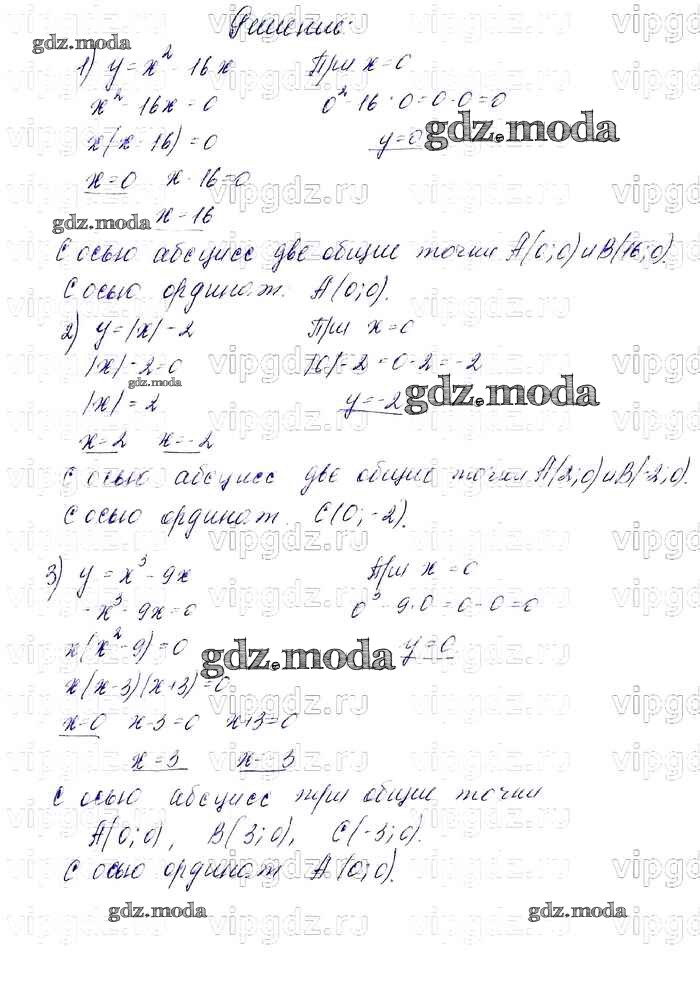 Решение:
1) y = x² - 16x При x = 0
x² - 16x = 0 0² - 16 · 0 = 0 - 0 = 0
x(x - 16) = 0 y = 0
x = 0 x - 16 = 0
x = 16
С осью абсцисс две общие точки A(0; 0) и B(16; 0).
С осью ординат A(0; 0).
2) y = |x| - 2 При x = 0
|x| - 2 = 0 |0| - 2 = 0 - 2 = -2
|x| = 2 y = -2
x = 2 x = -2
С осью абсцисс две общие точки A(2; 0) и B(-2; 0).
С осью ординат C(0; -2).
3) y = x³ - 9x При x = 0
x³ - 9x = 0 0³ - 9 · 0 = 0 - 0 = 0
x(x² - 9) = 0 y = 0
x(x - 3)(x + 3) = 0
x = 0 x - 3 = 0 x + 3 = 0
x = 3 x = -3
С осью абсцисс три общие точки
A(0; 0), B(3; 0), C(-3; 0).
С осью ординат A(0; 0).
gdz.moda
gdz.moda
gdz.moda
gdz.moda
gdz.moda
gdz.moda
gdz.moda
gdz.moda
vipgdz.ru